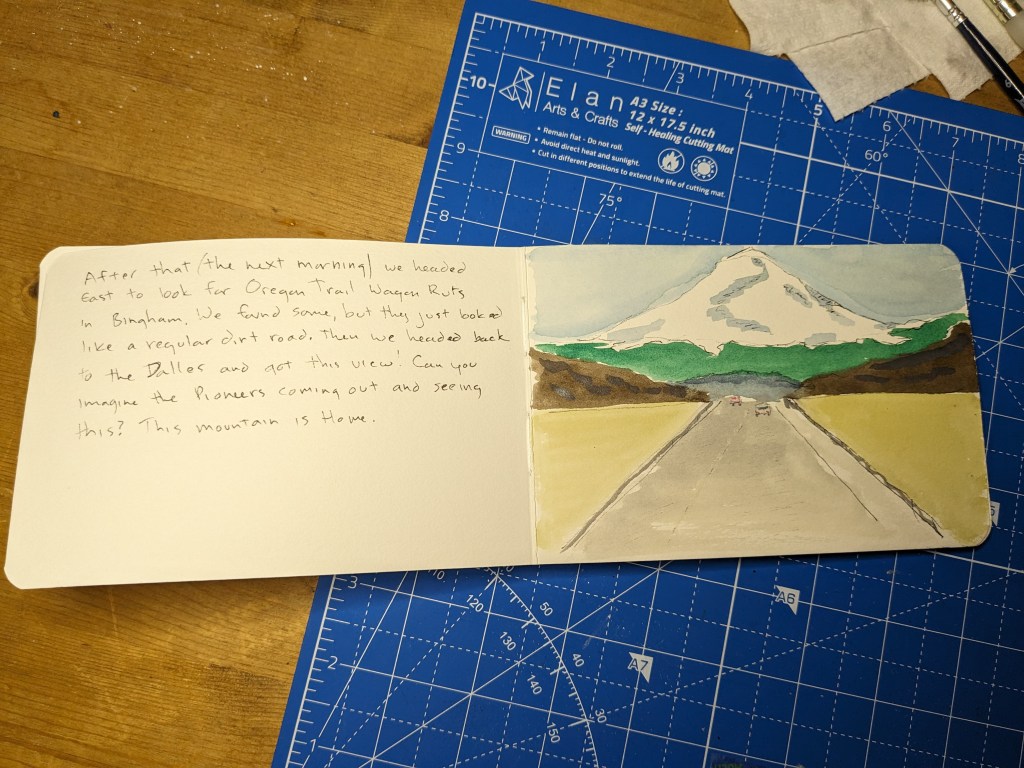 After that (the next morning) we headed
East to look for Oregon Trail Wagon Ruts
in Bingham. We found some, but they just looked
like a regular dirt road. Then we headed back
to the Dalles and got this view! Can you
imagine the Pioneers coming out and seeing
this? This mountain is Home.
Elan
Arts & Crafts
A3 Size :
12 x 17.5 inch
Self - Healing Cutting Mat
WARNING
• Remain flat - Do not roll.
• Avoid direct heat and sunlight.
• Cut in different positions to extend the life of cutting mat.
1 2 3 4 5 6 7 8
10
9
8
75°
60°
3
2
1
120
130
140
150
50
40
30
A6
A7